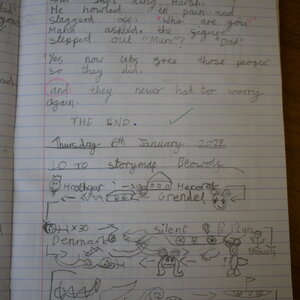 He howled in pain and
staggerd off. "Who are you"
Maka asked. the figure
stepped out "Mum"? "Dad"
Yes now lets free those people"
so they did.
and they never had too worry
again.
THE END.
Thursday 6th January 2022
LO TO storymap Beowolf
Hrothgar Heorot
Grendel
x30 Silent 12ya
Denmark